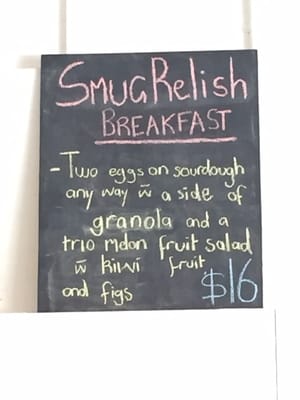 SMUGRelish
BREAKFAST
- Two eggs on sourdough
any way w̄ a side of
granola and a
trio melon fruit salad
w̄ kiwi fruit
and figs $16